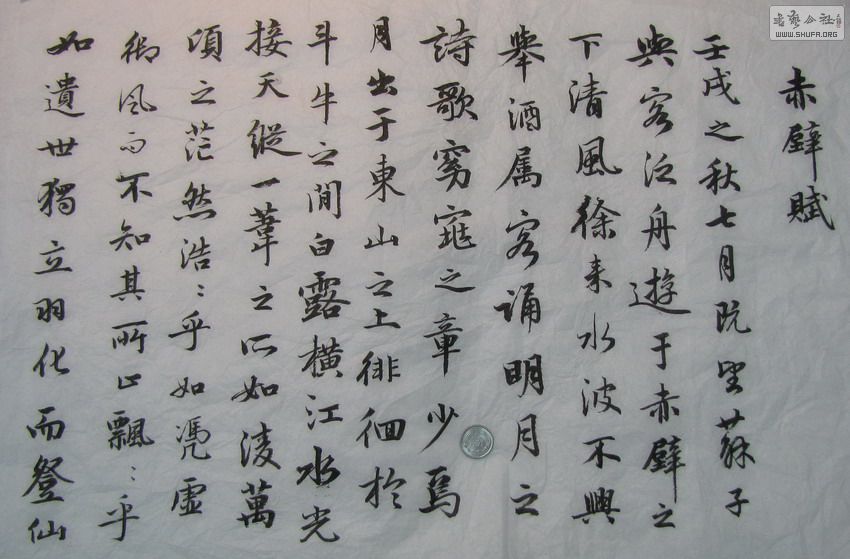 赤壁賦
壬戌之秋七月既望蘇子
與客泛舟遊于赤壁之
下清風徐来水波不興
舉酒属客誦明月之
詩歌窈窕之章少焉
月出于東山之上徘徊於
斗牛之間白露横江水光
接天縱一葦之所如淩萬
頃之茫然浩〻乎如馮虚
御風而不知其所止飄〻乎
如遺世獨立羽化而登仙
書藝公社
WWW.SHUFA.ORG